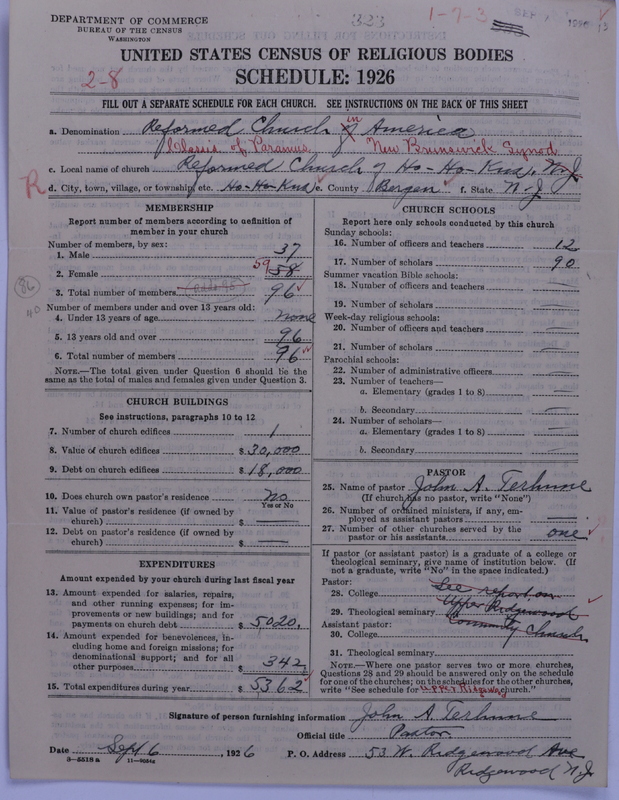 DEPARTMENT OF COMMERCE
BUREAU OF THE CENSUS
WASHINGTON
323
1-7-3
SEP 7 1926
UNITED STATES CENSUS OF RELIGIOUS BODIES
2-8
SCHEDULE: 1926
FILL OUT A SEPARATE SCHEDULE FOR EACH CHURCH. SEE INSTRUCTIONS ON THE BACK OF THIS SHEET
a. Denomination Reformed Church in America
Classis of Paramus New Brunswick Synod
c. Local name of church Reformed Church of Ho-Ho-Kus, N.J.
R
d. City, town, village, or township, etc. Ho-Ho-Kus e. County Bergen f. State N-J
MEMBERSHIP
Report number of members according to definition of
member in your church
Number of members, by sex:
1. Male 37
2. Female 59 58
3. Total number of members 96
86
40
Number of members under and over 13 years old:
4. Under 13 years of age none
5. 13 years old and over 96
6. Total number of members 96
NOTE.—The total given under Question 6 should be the
same as the total of males and females given under Question 3.
CHURCH BUILDINGS
See instructions, paragraphs 10 to 12
7. Number of church edifices 1
8. Value of church edifices $ 30,000
9. Debt on church edifices $ 18,000
10. Does church own pastor's residence no
Yes or No
11. Value of pastor's residence (if owned by
church) $ —
12. Debt on pastor's residence (if owned by
church) $ —
EXPENDITURES
Amount expended by your church during last fiscal year
13. Amount expended for salaries, repairs,
and other running expenses; for im-
provements or new buildings; and for
payments on church debt $ 5020.
14. Amount expended for benevolences, in-
cluding home and foreign missions; for
denominational support; and for all
other purposes $ 342
15. Total expenditures during year $ 5362
CHURCH SCHOOLS
Report here only schools conducted by this church
Sunday schools:
16. Number of officers and teachers 12
17. Number of scholars 90
Summer vacation Bible schools:
18. Number of officers and teachers —
19. Number of scholars —
Week-day religious schools:
20. Number of officers and teachers —
21. Number of scholars —
Parochial schools:
22. Number of administrative officers —
23. Number of teachers—
a. Elementary (grades 1 to 8) —
b. Secondary —
24. Number of scholars—
a. Elementary (grades 1 to 8) —
b. Secondary —
PASTOR
25. Name of pastor John A. Terhune
(If church has no pastor, write "None")
26. Number of ordained ministers, if any, em-
ployed as assistant pastors —
27. Number of other churches served by the
pastor or his assistants one
If pastor (or assistant pastor) is a graduate of a college or
theological seminary, give name of institution below. (If
not a graduate, write "No" in the space indicated.)
Pastor:
28. College See report on
29. Theological seminary Upper Ridgewood
Assistant pastor: Community Church
30. College
31. Theological seminary
NOTE.—Where one pastor serves two or more churches,
Questions 28 and 29 should be answered only on the schedule
for one of the churches; on the schedules for the other churches,
write "See schedule for Upper Ridgewood church."
Signature of person furnishing information John A. Terhune
Official title Pastor
Date Sept 6, 1926 P. O. Address 53 W. Ridgewood Ave
Ridgewood N.J.
3—5518 a 11—9054a